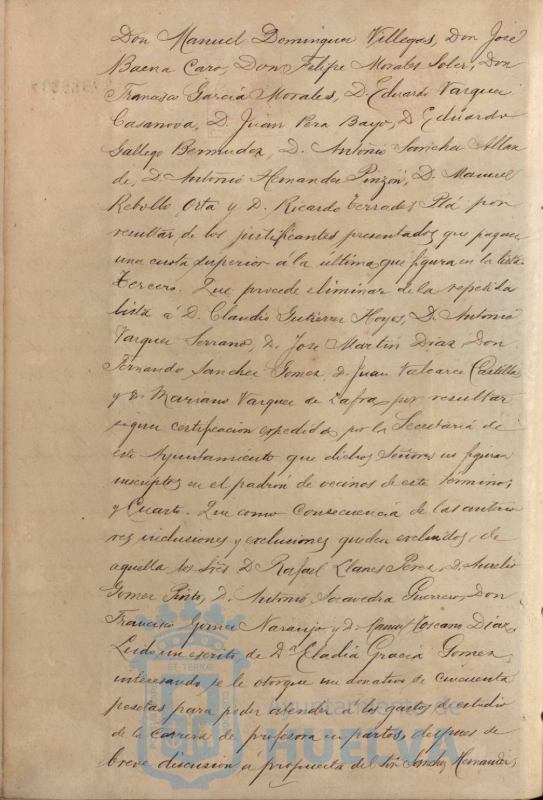 Don Manuel Dominguez Villegas, Don José
Baena Caro, Don Felipe Morales Soler, Don
Francisco García Morales, D. Eduardo Vazquez
Casanova, D. Juan Pera Bayo, D. Eduardo
Gallego Bermudez, D. Antonio Sanchez Allan
de, D. Antonio Hernandez Pinzón, D. Manuel
Rebollo Orta y D. Ricardo Terrades Plá por
resultar de los justificantes presentados, que pagan
una cuota superior á la última que figura en la lista
Tercero. Que procede eliminar de la repetida
lista á D. Claudio Gutierrez Hoyos, D. Antonio
Vazquez Serrano, D. José Martin Diaz, Don
Fernando Sanchez Gomez, D. Juan Valcarce Castilla
y D. Mariano Vazquez de Zafra, por resultar
segun certificacion expedida por la Secretaria de
este Ayuntamiento que dichos Señores no figuran
inscriptos en el padrón de vecinos de este término;
y Cuarto. Que como consecuencia de las anterio
res inclusiones y exclusiones quedan excluidos de
aquella los Srés D. Rafael Llanes Perez, D. Aurelio
Gomez Pinto, D. Antonio Saavedra Guerrero, Don
Francisco Gomez Naranjo y D. Manuel Toscano Diaz.
Leido un escrito de Dª Eladia Gracia Gomez,
interesando se le otorgue un donativo de cincuenta
pesetas para poder atender á los gastos de estudio
de la carrera de profesora en partos, despues de
breve discusion á propuesta del Sör. Sanchez Hernandez,
ET TERRAE
Ayuntamiento de
HUELVA